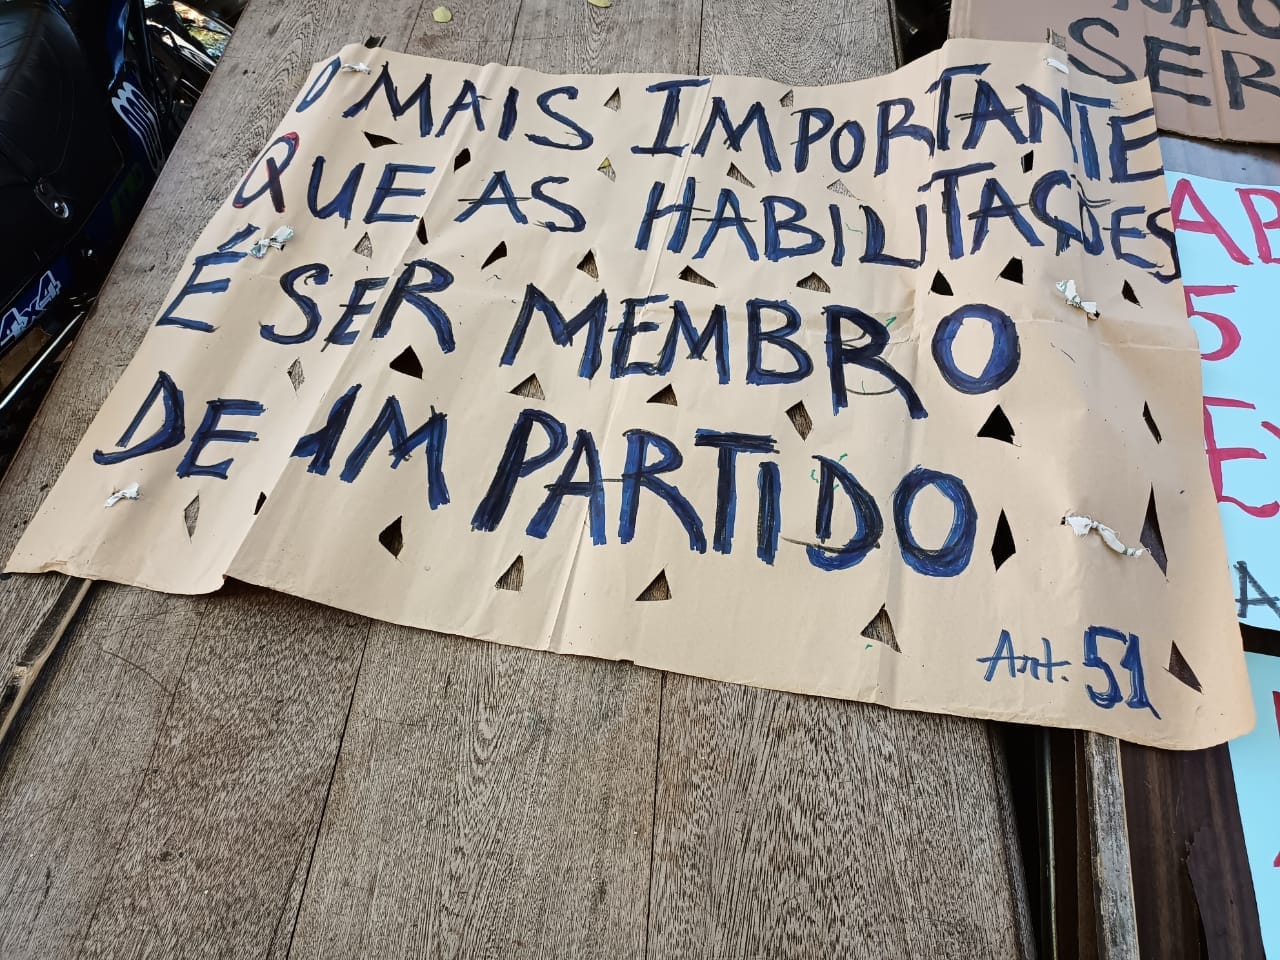 O MAIS IMPORTANTE
QUE AS HABILITAÇÕES
É SER MEMBRO
DE 1M PARTIDO
Art. 51
NÃO
SER
AB
5
E
A
4x4